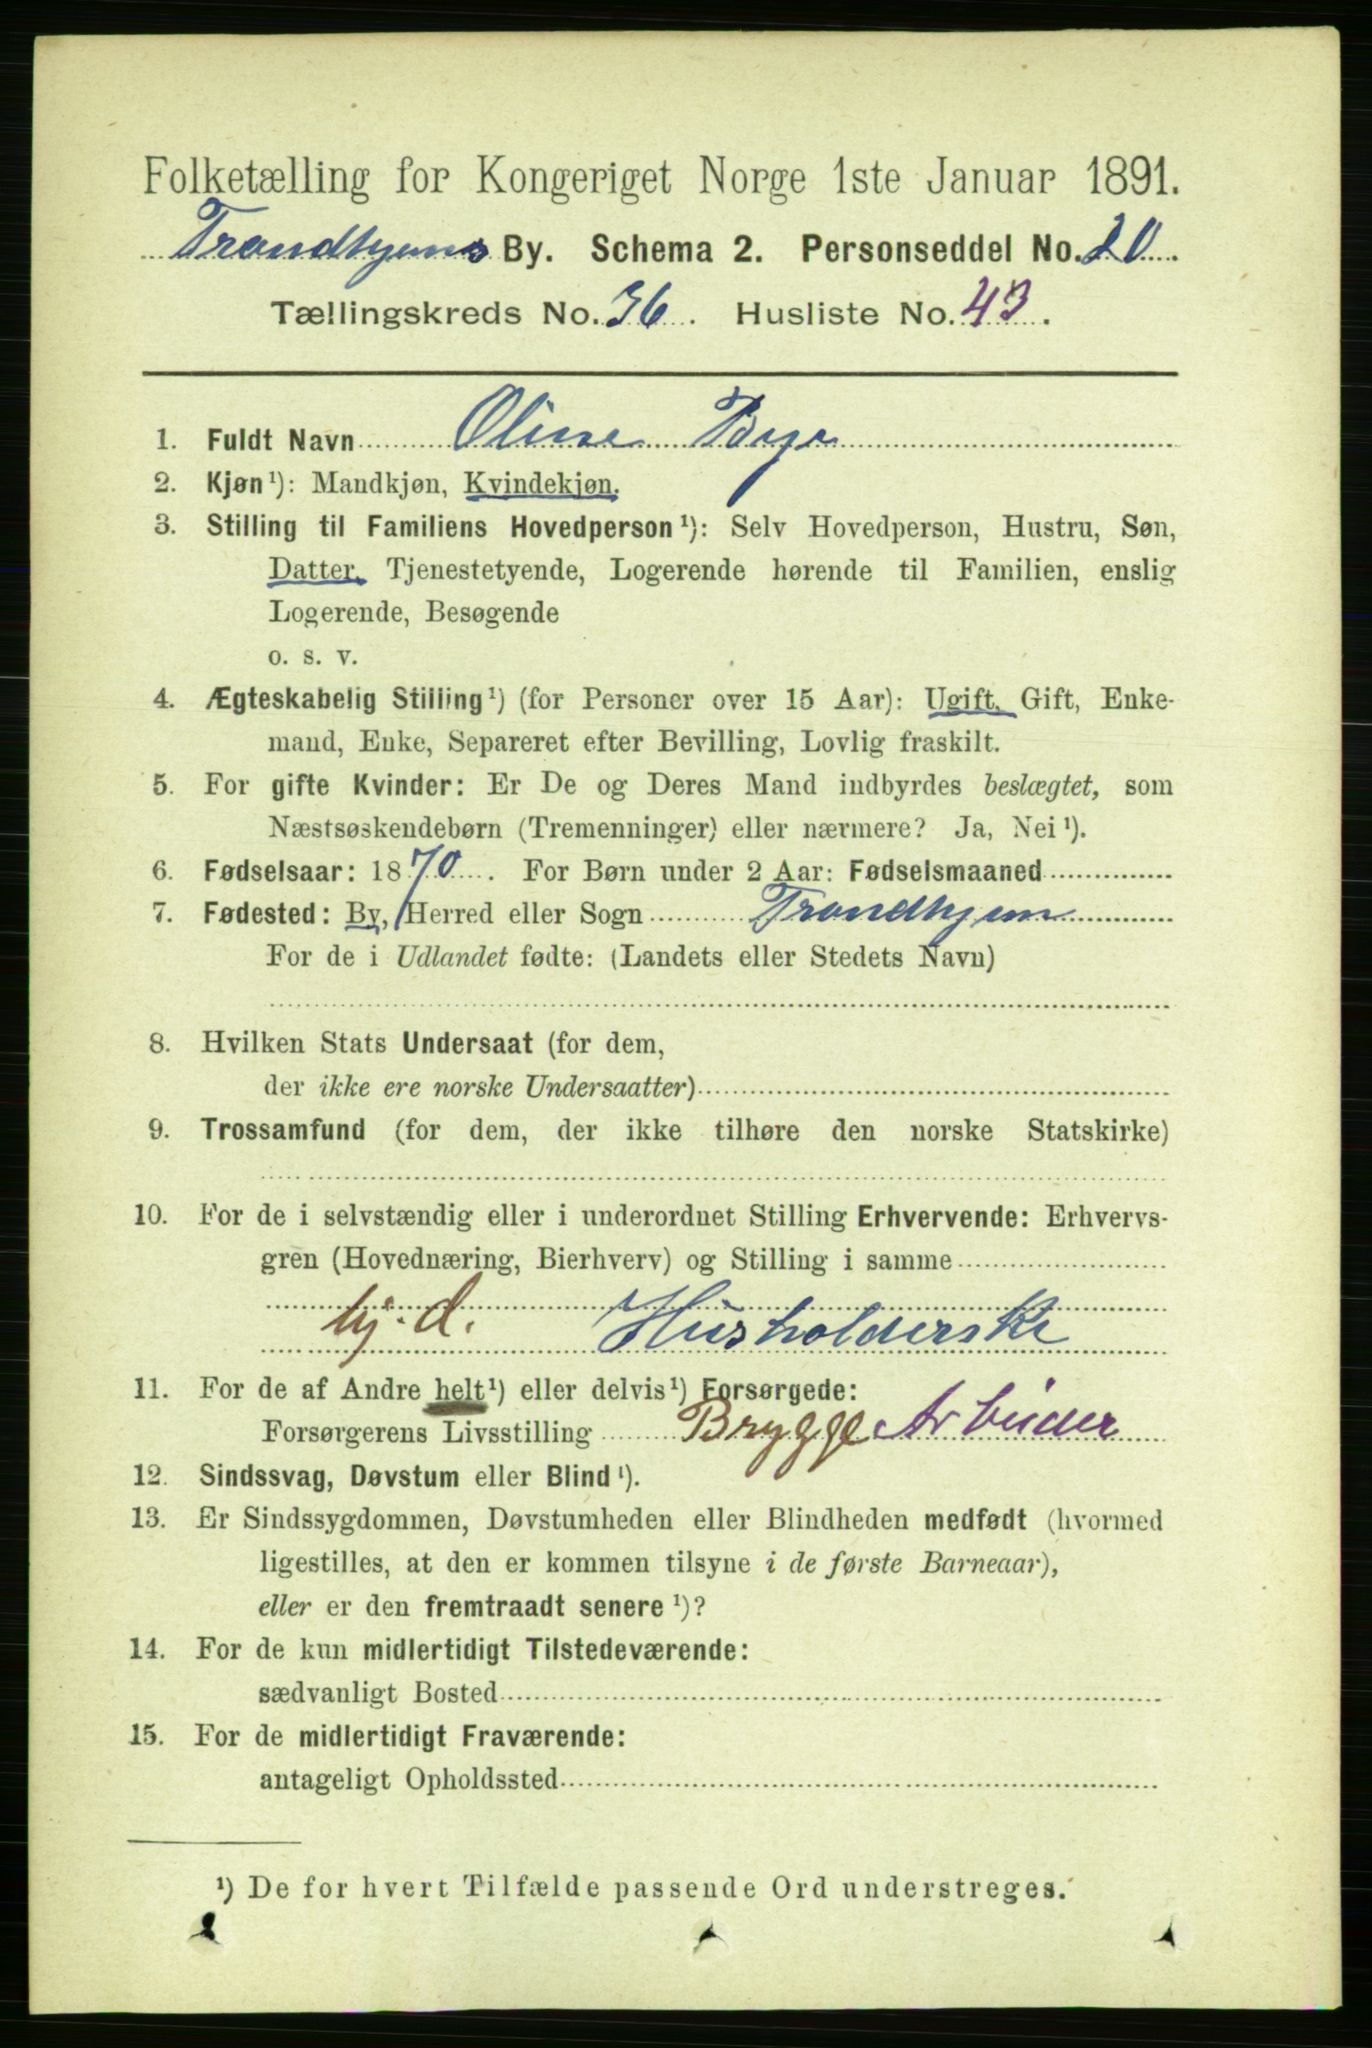 Folketælling for Kongeriget Norge 1ste Januar 1891.
Trondhjems By. Schema 2. Personseddel No. 20.
Tællingskreds No. 36. Husliste No. 43.
1. Fuldt Navn Oline Bye
2. Kjøn¹): Mandkjøn, Kvindekjøn.
3. Stilling til Familiens Hovedperson¹): Selv Hovedperson, Hustru, Søn,
Datter, Tjenestetyende, Logerende hørende til Familien, enslig
Logerende, Besøgende
o. s. v.
4. Ægteskabelig Stilling¹) (for Personer over 15 Aar): Ugift, Gift, Enke-
mand, Enke, Separeret efter Bevilling, Lovlig fraskilt.
5. For gifte Kvinder: Er De og Deres Mand indbyrdes beslægtet, som
Næstsøskendebørn (Tremenninger) eller nærmere? Ja, Nei¹).
6. Fødselsaar: 1870. For Børn under 2 Aar: Fødselsmaaned
7. Fødested: By, Herred eller Sogn Trondhjem
For de i Udlandet fødte: (Landets eller Stedets Navn)
8. Hvilken Stats Undersaat (for dem,
der ikke ere norske Undersaatter)
9. Trossamfund (for dem, der ikke tilhøre den norske Statskirke)
10. For de i selvstændig eller i underordnet Stilling Erhvervende: Erhvervs-
gren (Hovednæring, Bierhverv) og Stilling i samme
hj. d. Husholderske
11. For de af Andre helt¹) eller delvis¹) Forsørgede:
Forsørgerens Livsstilling Brygge Arbeider
12. Sindssvag, Døvstum eller Blind¹).
13. Er Sindssygdommen, Døvstumheden eller Blindheden medfødt (hvormed
ligestilles, at den er kommen tilsyne i de første Barneaar),
eller er den fremtraadt senere¹)?
14. For de kun midlertidigt Tilstedeværende:
sædvanligt Bosted
15. For de midlertidigt Fraværende:
antageligt Opholdssted
¹) De for hvert Tilfælde passende Ord understreges.